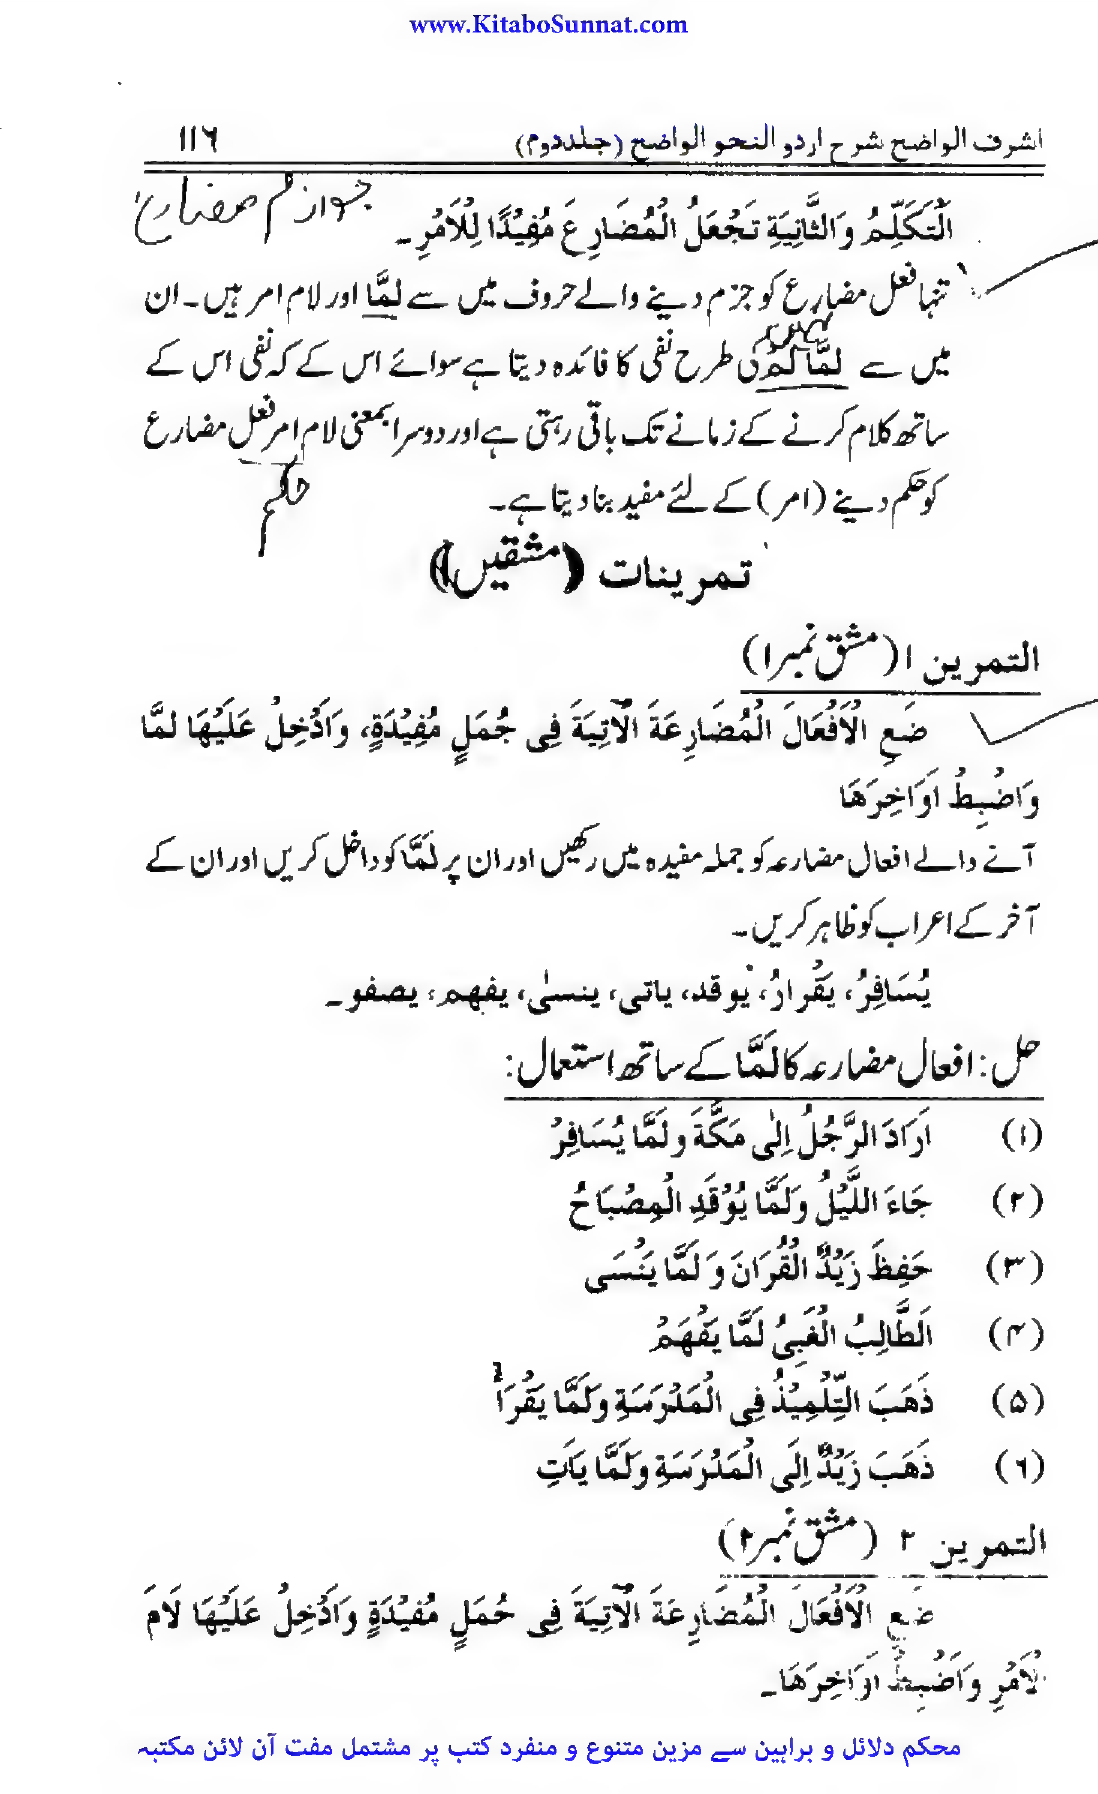 www.KitaboSunnat.com
اشرف الواضح شرح اردو النحو الواضح (جلد دوم) ١١٦
جوازم مضارع
اَلْتَكَلِّمُ وَالثَّانِيَةِ تَجْعَلُ الْمُضَارِعَ مُفِيْدًا لِلْاَمْرِ۔
تنہا فعل مضارع کو جزم دینے والے حروف میں سے لَمَّا اور لام امر ہیں۔ ان
میں سے لَمَّا لَمْ کی طرح نفی کا فائدہ دیتا ہے سوائے اس کے کہ نفی اس کے
ساتھ کلام کرنے کے زمانے تک باقی رہتی ہے اور دوسرا بمعنی لام امر فعل مضارع
کو حکم دینے (امر) کے لئے مفید بنا دیتا ہے۔
حکم
تمرینات (مشقیں)
التمرین ۱ (مشق نمبر۱)
ضَعِ الْاَفْعَالَ الْمُضَارِعَةَ الْآتِيَةَ فِى جُمَلٍ مُفِيْدَةٍ، وَاَدْخِلْ عَلَيْهَا لَمَّا
وَاضْبِطْ اَوَاخِرَهَا
آنے والے افعال مضارعہ کو جملہ مفیدہ میں رکھیں اور ان پر لَمَّا کو داخل کریں اور ان کے
آخر کے اعراب کو ظاہر کریں۔
يُسَافِرُ، يَقْرَاُ، يوقد، ياتى، ينسىٰ، يفهم، يصفو۔
حل: افعال مضارعہ کا لَمَّا کے ساتھ استعمال:
(۱) اَرَادَ الرَّجُلُ اِلٰى مَكَّةَ وَلَمَّا يُسَافِرْ
(۲) جَاءَ اللَّيْلُ وَلَمَّا يُوْقَدِ الْمِصْبَاحُ
(۳) حَفِظَ زَيْدٌ الْقُرَانَ وَ لَمَّا يَنْسَى
(۴) اَلطَّالِبُ الْغَبِىُّ لَمَّا يَفْهَمْ
(۵) ذَهَبَ التِّلْمِيْذُ فِى الْمَدْرَسَةِ وَلَمَّا يَقْرَأْ
(۶) ذَهَبَ زَيْدٌ اِلَى الْمَدْرَسَةِ وَلَمَّا يَاتِ
التمرین ۲ (مشق نمبر۲)
ضَعِ الْاَفْعَالَ الْمُضَارِعَةَ الْآتِيَةَ فِى جُمَلٍ مُفِيْدَةٍ وَاَدْخِلْ عَلَيْهَا لَامَ
الْاَمْرِ وَاَضْبِطْ اَوَاخِرَهَا۔
محکم دلائل و براہین سے مزین متنوع و منفرد کتب پر مشتمل مفت آن لائن مکتبہ